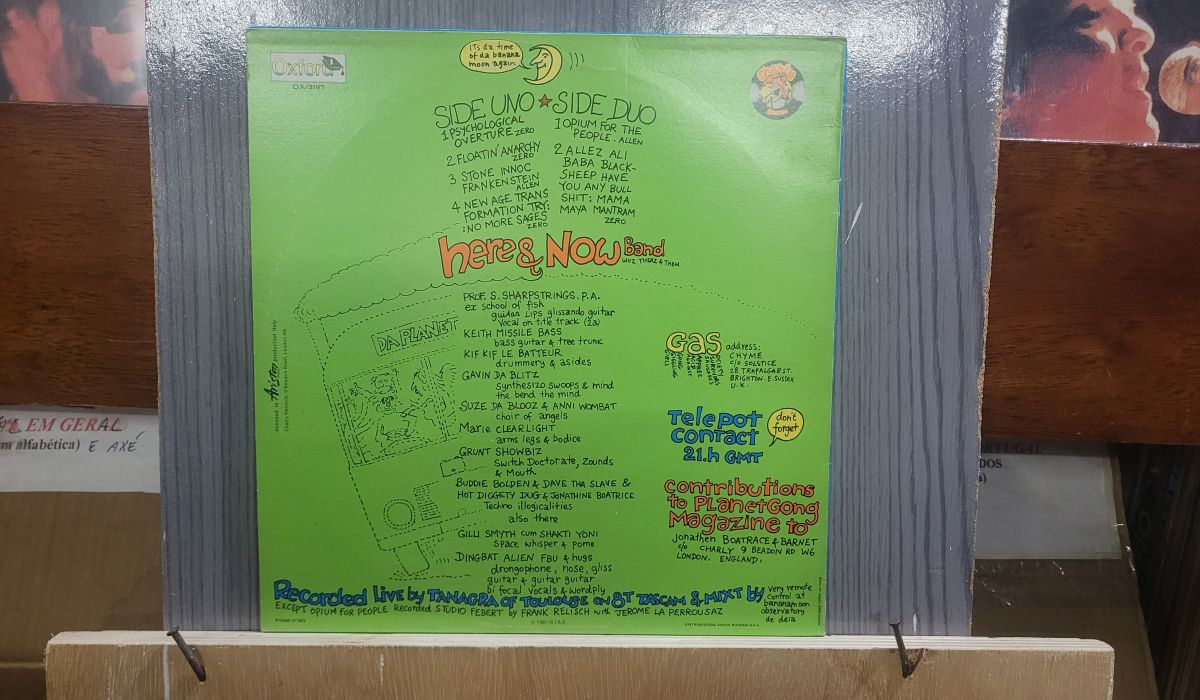 Oxford
OX/3197
it's da time
of da banana
moon again
SIDE UNO ★ SIDE DUO
1 PSYCHOLOGICAL
OVERTURE ZERO
2 FLOATIN' ANARCHY
ZERO
3 STONE INNOC
FRANKENSTEIN
ALLEN
4 NEW AGE TRANS
FORMATION TRY:
:NO MORE SAGES
ZERO
1 OPIUM FOR THE
PEOPLE. ALLEN
2 ALLEZ ALI
BABA BLACK-
SHEEP HAVE
YOU ANY BULL
SHIT: MAMA
MAYA MANTRAM
ZERO
here & NOW Band
WUZ THERE & THEN
DA PLANET
PROF. S. SHARPSTRINGS. P.A.
ex school of fish
guidar Lips glissando guitar
Vocal on title track (2a)
KEITH MISSILE BASS
bass guitar & tree trunk
KIF KIF LE BATTEUR
drummery & asides
GAVIN DA BLITZ
Synthesizo swoops & mind
the bend the mind
SUZE DA BLOOZ & ANNI WOMBAT
choir of angels
Marie CLEARLIGHT
arms legs & bodice
GRUNT SHOWBIZ
Switch Doctorate, Zounds
& Mouth
BUDDIE BOLDEN & DAVE THA SLAVE &
HOT DIGGETY DUG & JONATHINE BOATRICE
Techno illogicalities
also there
GILLI SMYTH cum SHAKTI YONI
Space whisper & pome
DINGBAT ALIEN FBU & hugs
drongophone, nose, gliss
guitar & guitar guitar
bi focal vocals & wordply
GAS address:
CHYME
c/o SOLSTICE
28 TRAFALGAR ST.
BRIGHTON. E. SUSSEX
U.K.
Telepot
contact
21.h GMT
don't
forget
contributions
to PLANETGONG
Magazine to
Jonathen BOATRACE & BARNET
c/o CHARLY 9 BEADON RD W6
LONDON. ENGLAND.
Recorded Live by TANAGRA OF TOULOUSE ON 8T TASCAM & MIXT by
very remote
control at
bananamoon
observatory
de deia
EXCEPT OPIUM FOR PEOPLE Recorded STUDIO FEBERT by FRANK RELISCH with JEROME LA PERROUSAZ
Printed in Italy
℗ 1981 · S.I.A.E.
DISTRIBUZIONE DISCHI RICORDI S.P.A.
licensed to Ariston production Italy
Charly Records, 9 Beadon Road, London W6
EM GERAL
m alfabética) E AXÉ
PORTUGAL
DOS